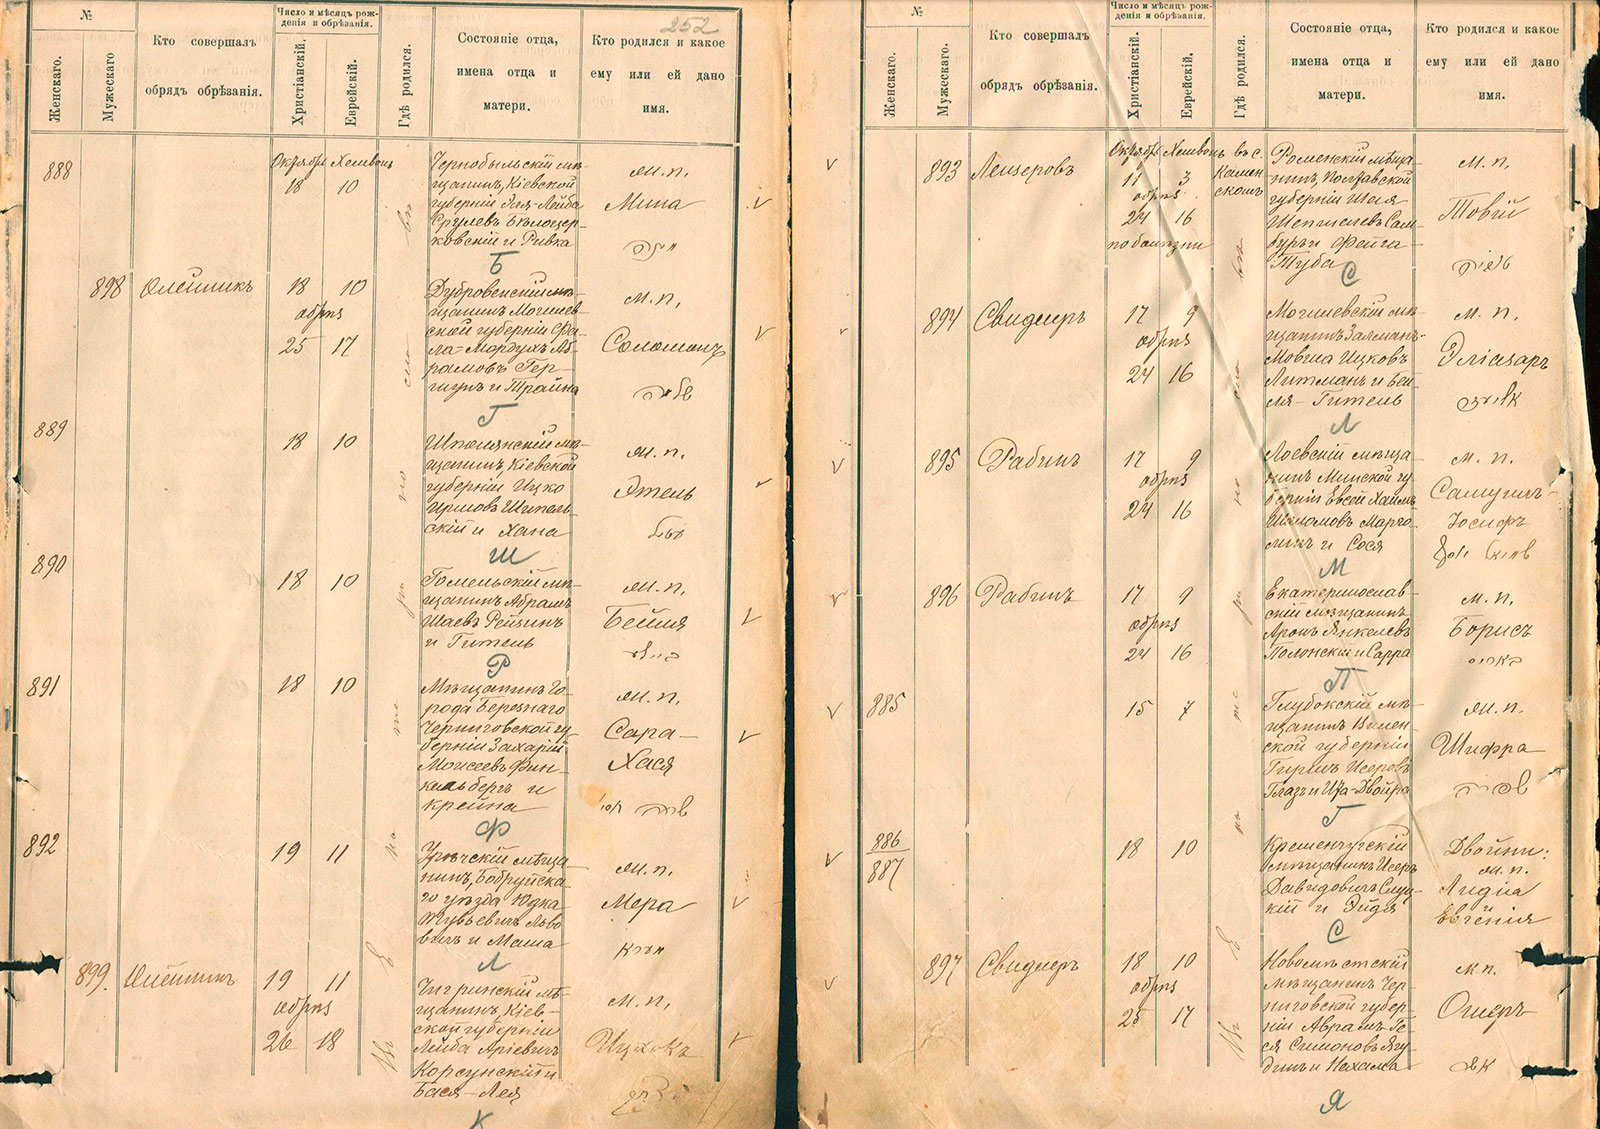 №
Женскаго.
Мужескаго
Кто совершалъ
обрядъ обрѣзанія.
Число и мѣсяцъ рож-
денія и обрѣзанія.
Христіанскій.
Еврейскій.
Гдѣ родился.
Состояніе отца,
имена отца и
матери.
252
Кто родился и какое
ему или ей дано
имя.
888
Октябрь Хешвонъ
18 10
Чернобыльскій мѣ-
щанинъ, Кіевской
губерніи
Срулевъ Бѣлоцер-
ковскій и Ривка
м. п.
Мина
Б
898 Олейникъ
18 10
обрѣз
25 17
Дубровенскій мѣ-
щанинъ Могилев-
ской губерніи
Мордухъ Аб-
рамовъ
и Трайна
м. п.
Соломонъ
Г
889
18 10
Шполянскій мѣ-
щанинъ, Кіевской
губерніи Ицко
Шполь-
скій и Хана
м. п.
Этель
Ш
890
18 10
Гомельскій мѣ-
щанинъ Абрамъ
Шаевъ Рейзинъ
и Гитель
м. п.
Бейля
Р
891
18 10
Мѣщанинъ го-
рода Березнаго
Черниговской гу-
берніи Захарій
Моисеевъ Фин-
кельбергъ и
Крейна
м. п.
Сара-
Хася
Ф
892
19 11
мѣща-
нинъ, Бобруйска-
го уѣзда Юдка
Тувьевичъ Льво-
вичъ и Маша
м. п.
Мера
Л
899. Олейникъ
19 11
обрѣз
26 18
Чигринскій мѣ-
щанинъ, Кіев-
ской губерніи
Лейба Аріевичъ
Корсунскій и
Бася-Лея
м. п.
Ицхокъ
К
№
Женскаго.
Мужескаго.
Кто совершалъ
обрядъ обрѣзанія.
Число и мѣсяцъ рож-
денія и обрѣзанія.
Христіанскій.
Еврейскій.
Гдѣ родился.
Состояніе отца,
имена отца и
матери.
Кто родился и какое
ему или ей дано
имя.
893 Лещеровъ
Октябрь Хешвонъ
11 3
обрѣз
24 16
по болѣзни
въ с.
Камен-
скомъ
Роменскій мѣща-
нинъ, Полтавской
губерніи Шая
Сам-
буръ и Фейга-
Туба
м. п.
Товій
С
894 Свидлеръ
17 9
обрѣз
24 16
Могилевскій мѣ-
щанинъ Залманъ-
Мовша Ицковъ
Литманъ и Бей-
ля-Гитель
м. п.
Эліазаръ
Л
895 Рабинъ
17 9
обрѣз
24 16
Лоевскій мѣща-
нинъ Минской гу-
берніи Евсей Хаимъ
Шоломовъ Марго-
линъ и Сося
м. п.
Самуилъ-
Іосифъ
М
896 Рабинъ
17 9
обрѣз
24 16
Екатеринослав-
скій мѣщанинъ
Аронъ Янкелевъ
Полонскій и Сарра
м. п.
Борисъ
П
885
15 7
Глубокскій мѣ-
щанинъ Вилен-
ской губерніи
Гиршъ Исеровъ
Глазъ и Ида-Двойра
м. п.
Шифра
Г
886
887
18 10
Кременчугскій
мѣщанинъ Исеръ
Давидовичъ Слуц-
кій и Эйдя
Двойни:
м. п.
Лидіа
и
Евгенія
С
897 Свидлеръ
18 10
обрѣз
25 17
Новомѣстскій
мѣщанинъ Чер-
ниговской губер-
ніи Аврамъ-Ге-
ся Симоновъ Ягу-
динъ и Нехама
м п.
Ошеръ
Я